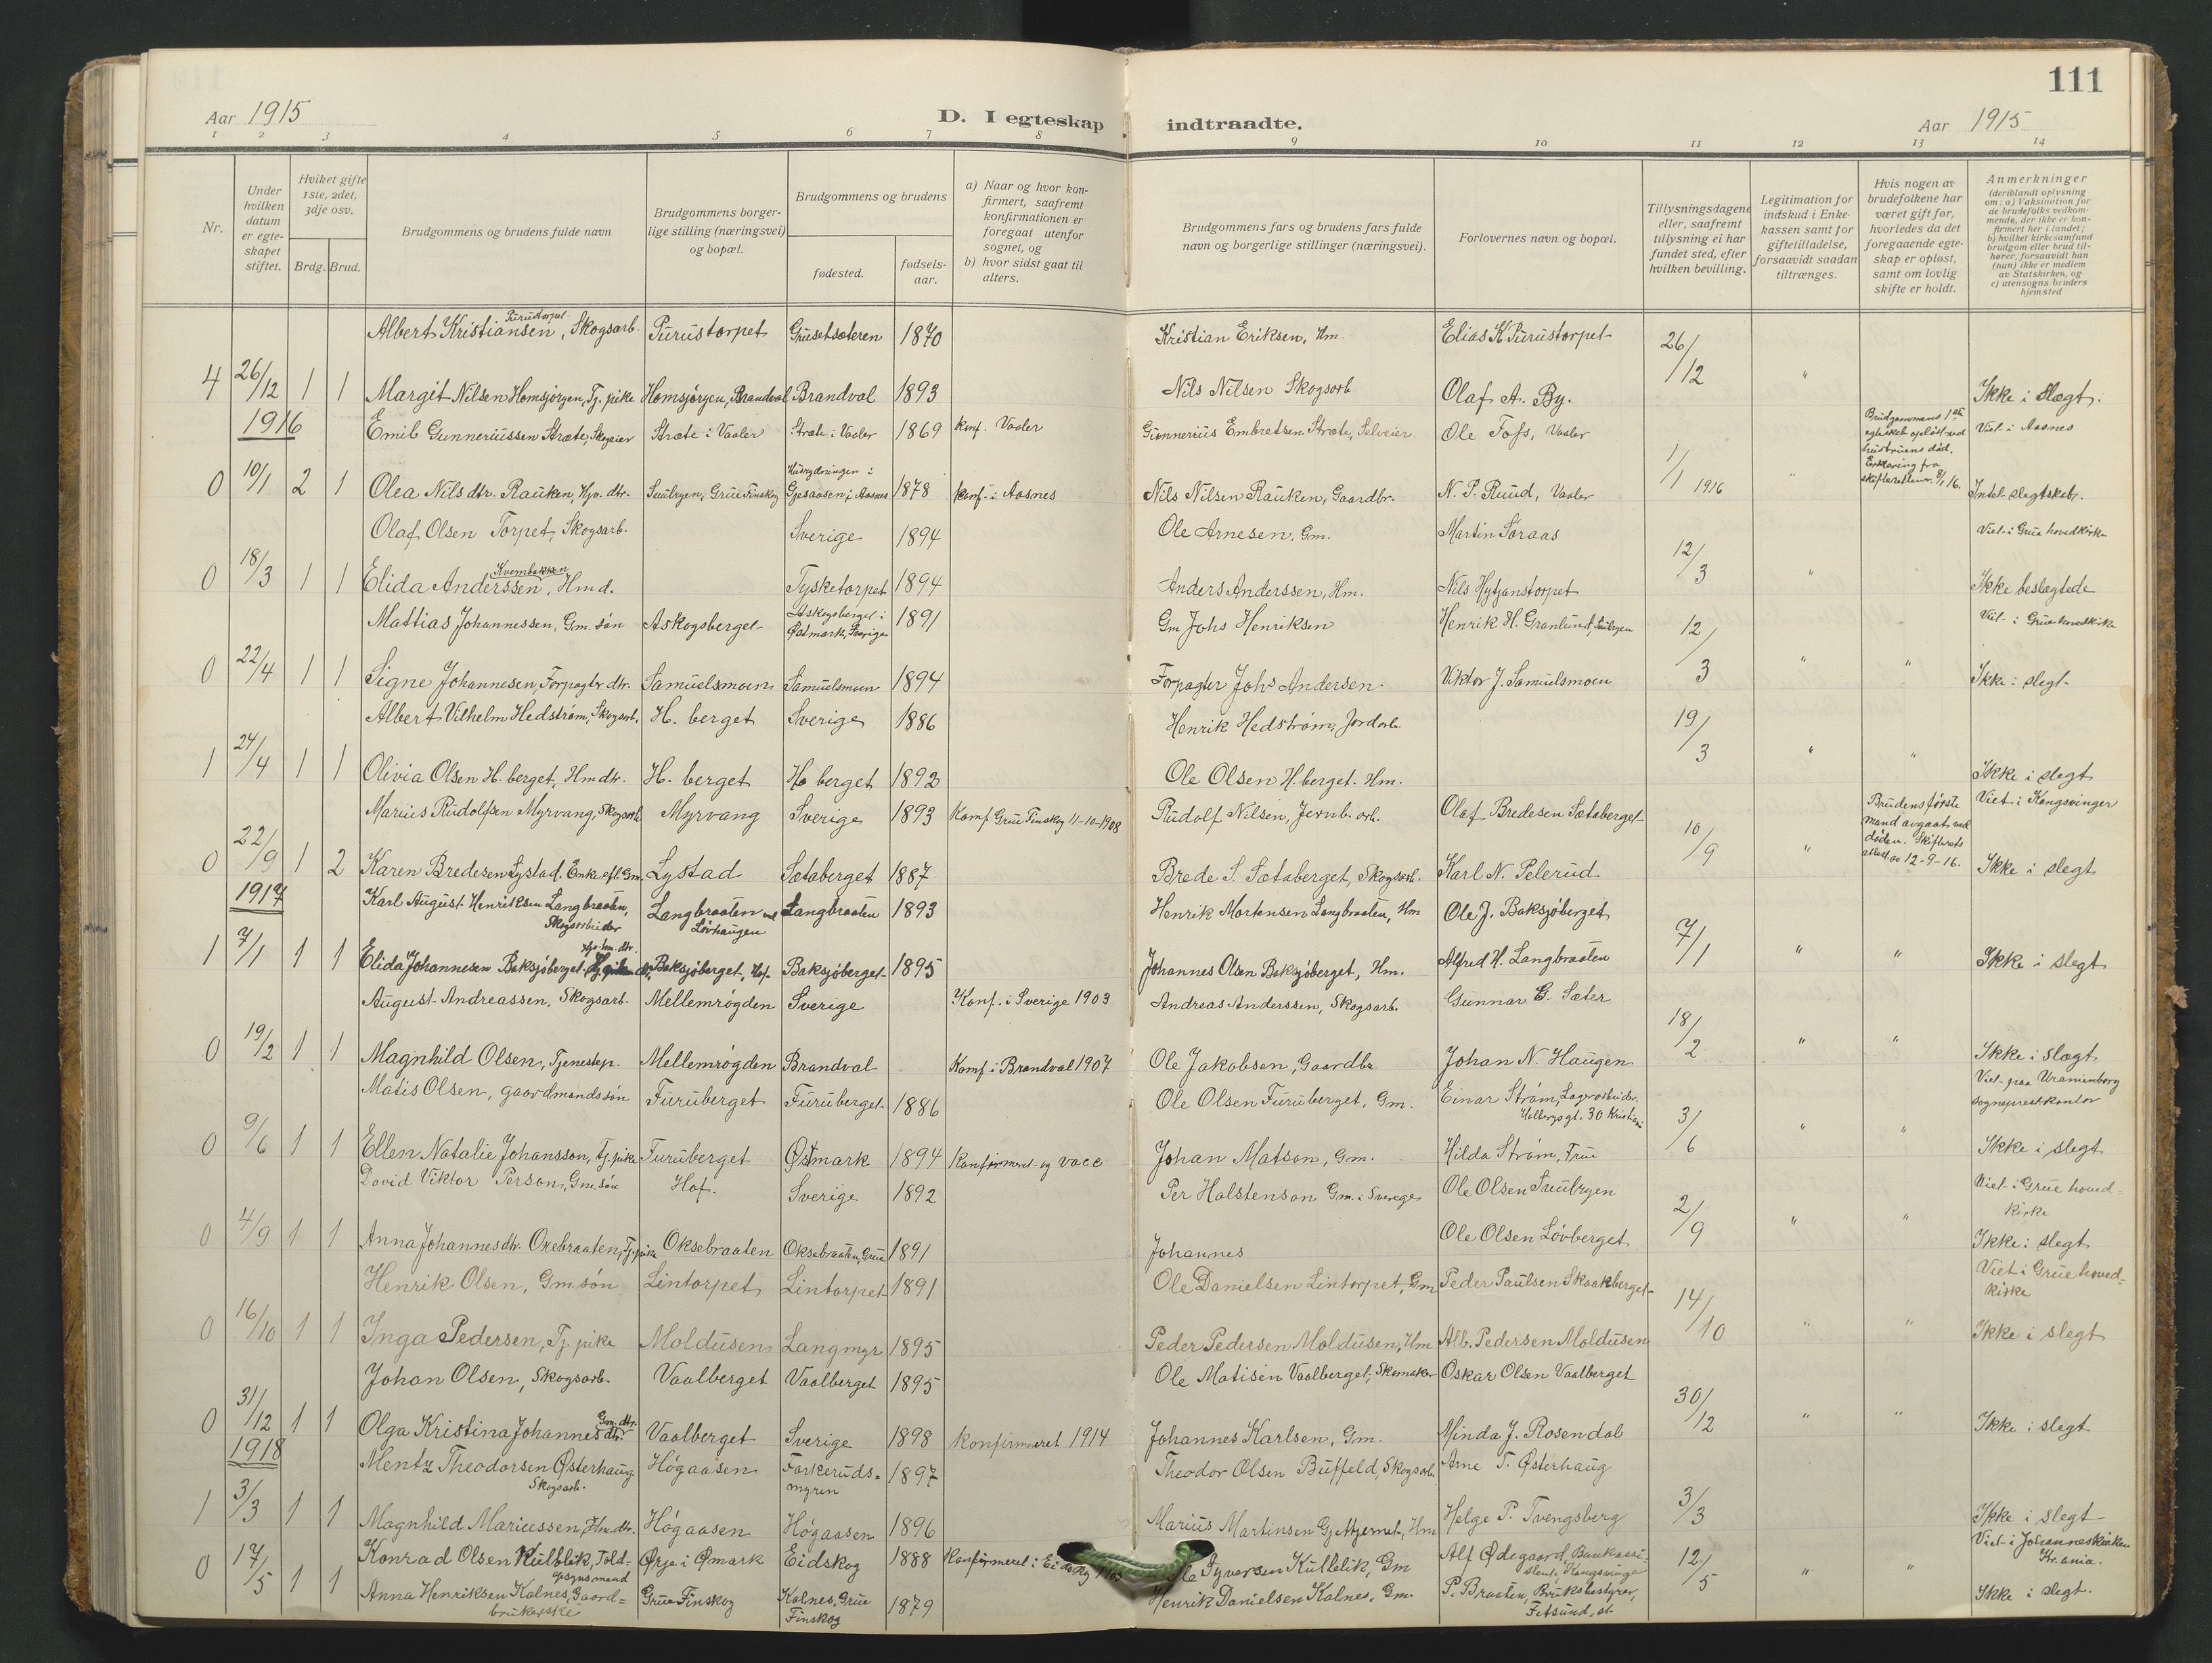 111
Aar 1915
D. I egteskap indtraadte.
Aar 1915
1 2 3 4 5 6 7 8 9 10 11 12 13 14
Nr.
Under hvilken datum er egte-skapet stiftet.
Hviket gifte 1ste, 2det, 3dje osv.
Brdg. Brud.
Brudgommens og brudens fulde navn
Brudgommens borger-lige stilling (næringsvei) og bopæl.
Brudgommens og brudens
fødested.
fødsels-aar.
a) Naar og hvor kon-firmert, saafremt konfirmationen er foregaat utenfor sognet, og
b) hvor sidst gaat til alters.
Brudgommens fars og brudens fars fulde navn og borgerlige stillinger (næringsvei).
Forlovernes navn og bopæl.
Tillysningsdagene eller, saafremt tillysning ei har fundet sted, efter hvilken bevilling.
Legitimation for indskud i Enke-kassen samt for giftetilladelse, forsaavidt saadan tiltrænges.
Hvis nogen av brudefolkene har været gift før, hvorledes da det foregaaende egte-skap er opløst, samt om lovlig skifte er holdt.
Anmerkninger (deriblandt oplysning om: a) Vaksination for de brudefolks vedkom-mende, der ikke er kon-firmert her i landet; b) hvilket kirkesamfund brudgom eller brud til-hører, forsaavidt han (hun) ikke er medlem av Statskirken, og c) utensogns bruders hjemsted
Albert Kristiansen Purustorpet, Skogsarb. Purustorpet Grusetsæteren 1870 Kristian Eriksen, Hm. Elias K. Purustorpet 26/12
4 26/12 1 1 Margit Nilsen Homsjørgen, Tj. pike Homsjørgen, Brandval Brandval 1893 Nils Nilsen Skogsarb Olaf A. By. " Ikke i slegt.
1916 Emil Gunneriussen Stræte, Skogeier Stræte i Vaaler Stræte i Vaaler 1869 konf. Vaaler Gunnerius Embretsen Stræte, Selveier Ole Foss, Vaaler 1/1 1916 Brudgommens 1ste egteskab opløst ved hustruens død. Erklæring fra skifteretten 8/1 16. Viet i Aasnes
0 10/1 2 1 Olea Nils dtr. Rauken, Hjv. dtr. Suulryen, Grue Finskog Husrydningen i Gjesaasen i Aasnes 1878 konf. i Aasnes Nils Nilsen Rauken, Gaardbr. N. P. Ruud, Vaaler " Intet slegtskab.
Olaf Olsen Torpet, Skogsarb. Sverige 1894 Ole Arnesen, Gm. Martin Søraas 12/3 Viet i Grue hovedkirke
0 18/3 1 1 Elida Anderssen Kvernbakken, Hmd. Tysketorpet 1894 Anders Anderssen, Hm. Nils Hytjanstorpet " Ikke beslegtede
Mattias Johannessen, Gm. søn Askogsberget Askogsberget i Østmark, Sverige 1891 Gm Johs Henriksen Henrik H. Granlund, Suulryen 12/3 Viet i Grue hovedkirke
0 22/4 1 1 Signe Johannesen, Forpagter dtr. Samuelsmoen Samuelsmoen 1894 Forpagter Johs Andersen Viktor J. Samuelsmoen " " Ikke i slegt
Albert Vilhelm Hedstrøm, Skogsarb. H. berget Sverige 1886 Henrik Hedstrøm, Jordarb. 19/3
1 24/4 1 1 Olivia Olsen H. berget, Hm dtr. H. berget H. berget 1892 Ole Olsen H. berget. Hm. " " Ikke i slegt
Marius Rudolfsen Myrvang, Skogsarb Myrvang Sverige 1893 Konf. Grue Finskog 11-10-1908 Rudolf Nilsen, Jernb. arb. Olaf Bredesen Sætaberget 10/9 Brudens første mand avgaat ved døden. Skifterets attest av 12-9-16. Viet i Kongsvinger
0 22/9 1 2 Karen Bredesen Lystad. Enke eft. Gm. Lystad Sætaberget 1887 Brede S. Sætaberget, Skogsarb. Karl N. Pelerud " Ikke i slegt
1917 Karl August Henriksen Langbraaten, Skogsarbeider Langbraaten ved Løvhaugen Langbraaten 1893 Henrik Mortensen Langbraaten, Hm Ole J. Baksjøberget 7/1
1 7/1 1 1 Elida Johannesen Baksjøberget, Hjv. hm. dtr. Baksjøberget, Hof. Baksjøberget 1895 Johannes Olsen Baksjøberget, Hm. Alfred H. Langbraaten " " Ikke i slegt
August Andreassen, Skogsarb. Mellemrøgden Sverige Konf. i Sverige 1903 Andreas Anderssen, Skogsarb. Gunnar G. Sæter 18/2
0 19/2 1 1 Magnhild Olsen, Tjenestep. Mellemrøgden Brandval Konf i Brandval 1907 Ole Jakobsen, Gaardbr Johan N. Haugen " " Ikke i slegt
Matis Olsen, gaardmandssøn Furuberget Furuberget 1886 Ole Olsen Furuberget, Gm. Einar Strøm, Lagerarbeider. 30 Kristiania 3/6 Viet paa Uranienborg sogneprestkontor
0 9/6 1 1 Ellen Natalie Johansson, Tj. pike Furuberget Østmark 1894 Konfirmeret og vacc Johan Matson, Gm. Hilda Strøm, Frue " " Ikke i slegt
David Viktor Person, Gm. søn Hof. Sverige 1892 Per Halstenson Gm. i Sverige Ole Olsen Suulryen 2/9 Viet i Grue hoved-kirke
0 4/9 1 1 Anna Johannesdtr. Oxebraaten, Tj. pike Oksebraaten Oksebraaten, Grue 1891 Johannes Ole Olsen Løvberget " " Ikke i slegt
Henrik Olsen, Gm. søn Lintorpet Lintorpet 1891 Ole Danielsen Lintorpet, Gm Peder Paulsen Skaakberget 14/10 Viet i Grue hoved-kirke
0 16/10 1 1 Inga Pedersen, Tj. pike Moldusen Langmyr 1895 Peder Pedersen Moldusen, Hm Alb. Pedersen Moldusen " " Ikke i slegt
Johan Olsen, Skogsarb. Vaalberget Vaalberget 1895 Ole Matisen Vaalberget, Skomaker Oskar Olsen Vaalberget 30/12
0 31/12 1 1 Olga Kristina Johannesdtr. Gm. dtr. Vaalberget Sverige 1898 Konfirmeret 1914 Johannes Karlsen, Gm. Minda J. Rosendal " " Ikke i slegt
1918 Mentz Theodorsen Østerhaug Skogsarb. Høgaasen Farkeruds-myren 1897 Theodor Olsen Buffeld, Skogsarb. Arne T. Østerhaug 3/3
1 3/3 1 1 Magnhild Mariussen, Hm. dtr. Høgaasen Høgaasen 1896 Marius Martinsen, Hm Helge P. Tvengsberg Ikke i slegt
0 17/5 1 1 Konrad Olsen Kulblik, Told-opsynsmand Ørje i Ømark Eidskog 1888 Konfirmeret i Eidskog 1903 Ole Iversen Kulblik, Gm Alf Ødegaard, Bankassi-stent, Kongsvinger 12/5 " " Viet i Johanneskirken Kr.ania.
Anna Henriksen Kalnes, Gaard-brukerske Grue Finskog Kalnes, Grue Finskog 1879 Henrik Danielsen Kalnes, Gm. P. Braaten, Bruksbestyrer, Fetsund st. Ikke i slegt.